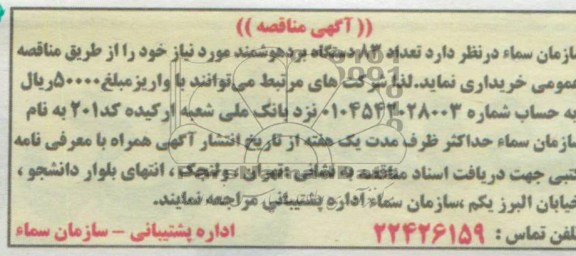 (( آگهی مناقصه ))
سازمان سماء درنظر دارد تعداد ۸۳ دستگاه بردهوشمند مورد نیاز خود را از طریق مناقصه
عمومی خریداری نماید.لذا شرکت های مرتبط می‌توانند با واریزمبلغ۵۰۰۰۰ریال
به حساب شماره ۰۱۰۴۵۴۲۰۲۸۰۰۳ نزد بانک ملی شعبه ارکیده کد۲۰۱ به نام
سازمان سماء حداکثر ظرف مدت یک هفته از تاریخ انتشار آگهی همراه با معرفی نامه
کتبی جهت دریافت اسناد مناقصه به نشانی :تهران ، ولنجک ، انتهای بلوار دانشجو ،
خیابان البرز یکم ،سازمان سماء اداره پشتیبانی مراجعه نمایند.
تلفن تماس : ۲۲۴۲۶۱۵۹ اداره پشتیبانی – سازمان سماء